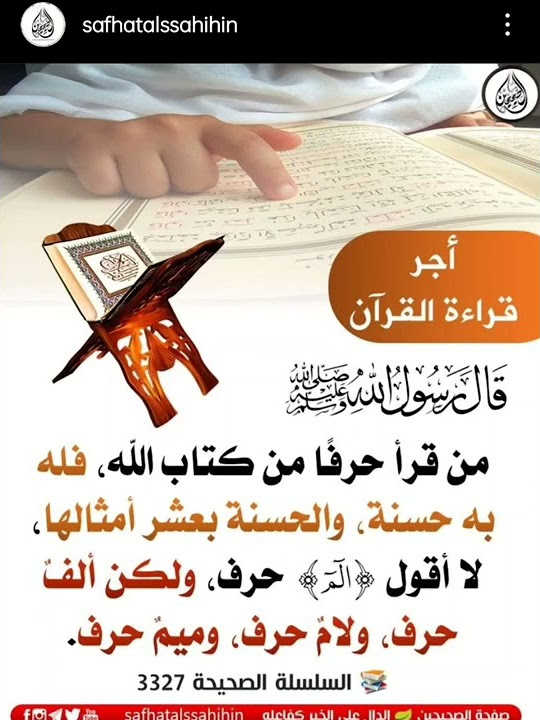 safhatalssahihin
أجر
قراءة القرآن
قَالَ رَسُولُ اللهِ صَلَّى اللهُ عَلَيْهِ وَسَلَّمَ
من قرأ حرفًا من كتاب الله، فله
به حسنة، والحسنة بعشر أمثالها،
لا أقول ﴿الٓمٓ﴾ حرف، ولكن ألفٌ
حرف، ولامٌ حرف، وميمٌ حرف.
السلسلة الصحيحة 3327
صفحة الصحيحين الدال على الخير كفاعله safhatalssahihin